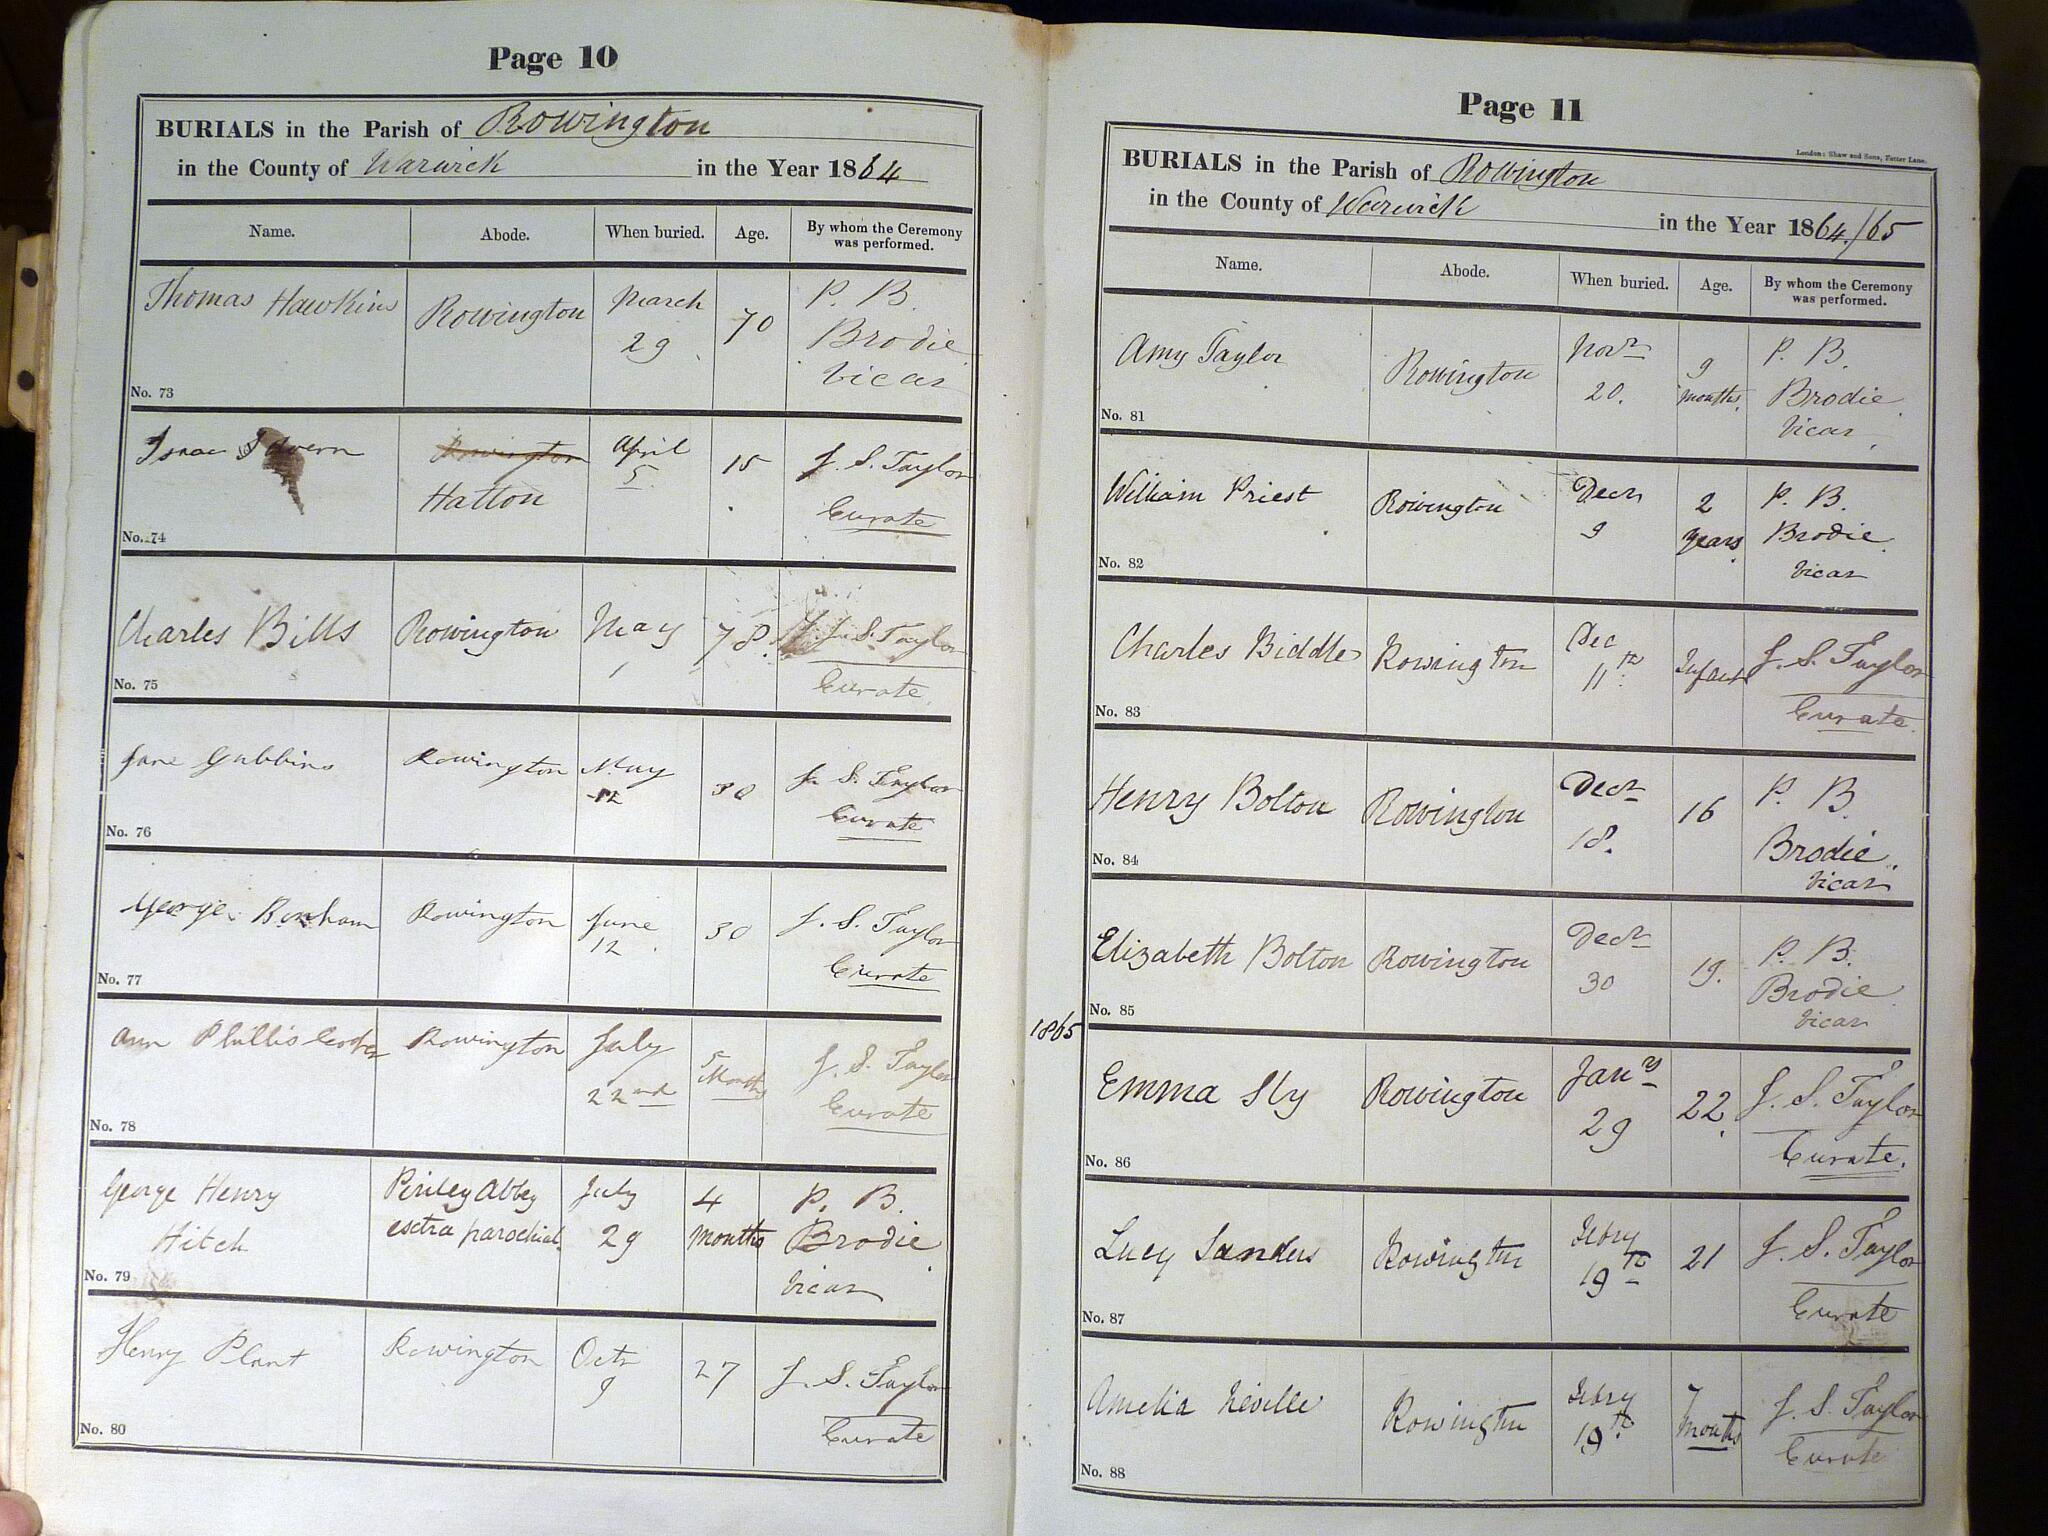 Page 10
BURIALS in the Parish of Rowington
in the County of Warwick in the Year 1864
Name. Abode. When buried. Age. By whom the Ceremony was performed.
Thomas Hawkins Rowington March 29 70 P. B. Brodie Vicar
No. 73
Isaac Rowington Hatton April 5 15 J. S. Taylor Curate
No. 74
Charles Bills Rowington May 1 78. J. S. Taylor Curate.
No. 75
Jane Gubbins Rowington May 12 30 J. S. Taylor Curate
No. 76
George Bonham Rowington June 12 30 J. S. Taylor Curate
No. 77
Ann Phillis Rowington July 22nd 5 Months J. S. Taylor Curate
No. 78
George Henry Hitch Pinley Abbey esctra parochial. July 29 4 months P. B. Brodie Vicar
No. 79
Henry Plant Rowington Octr 9 27 J. S. Taylor Curate
No. 80
Page 11
London: Shaw and Sons, Fetter Lane.
BURIALS in the Parish of Rowington
in the County of Warwick in the Year 1864./65
Name. Abode. When buried. Age. By whom the Ceremony was performed.
Amy Taylor Rowington Novr 20. 9 months. P. B. Brodie. Vicar
No. 81
William Priest Rowington Decr 9 2 years. P. B. Brodie. Vicar
No. 82
Charles Biddle Rowington Dec 11th Infant J. S. Taylor Curate.
No. 83
Henry Bolton Rowington Decr 18. 16 P. B. Brodie. Vicar
No. 84
Elizabeth Bolton Rowington Decr 30 19. P. B. Brodie Vicar
No. 85
1865
Emma Sly Rowington Jany 29 22. J. S. Taylor Curate.
No. 86
Lucy Sanders Rowington Febry 19th 21 J. S. Taylor Curate
No. 87
Amelia Neville Rowington Febry 19th. 7 Months J. S. Taylor Curate
No. 88